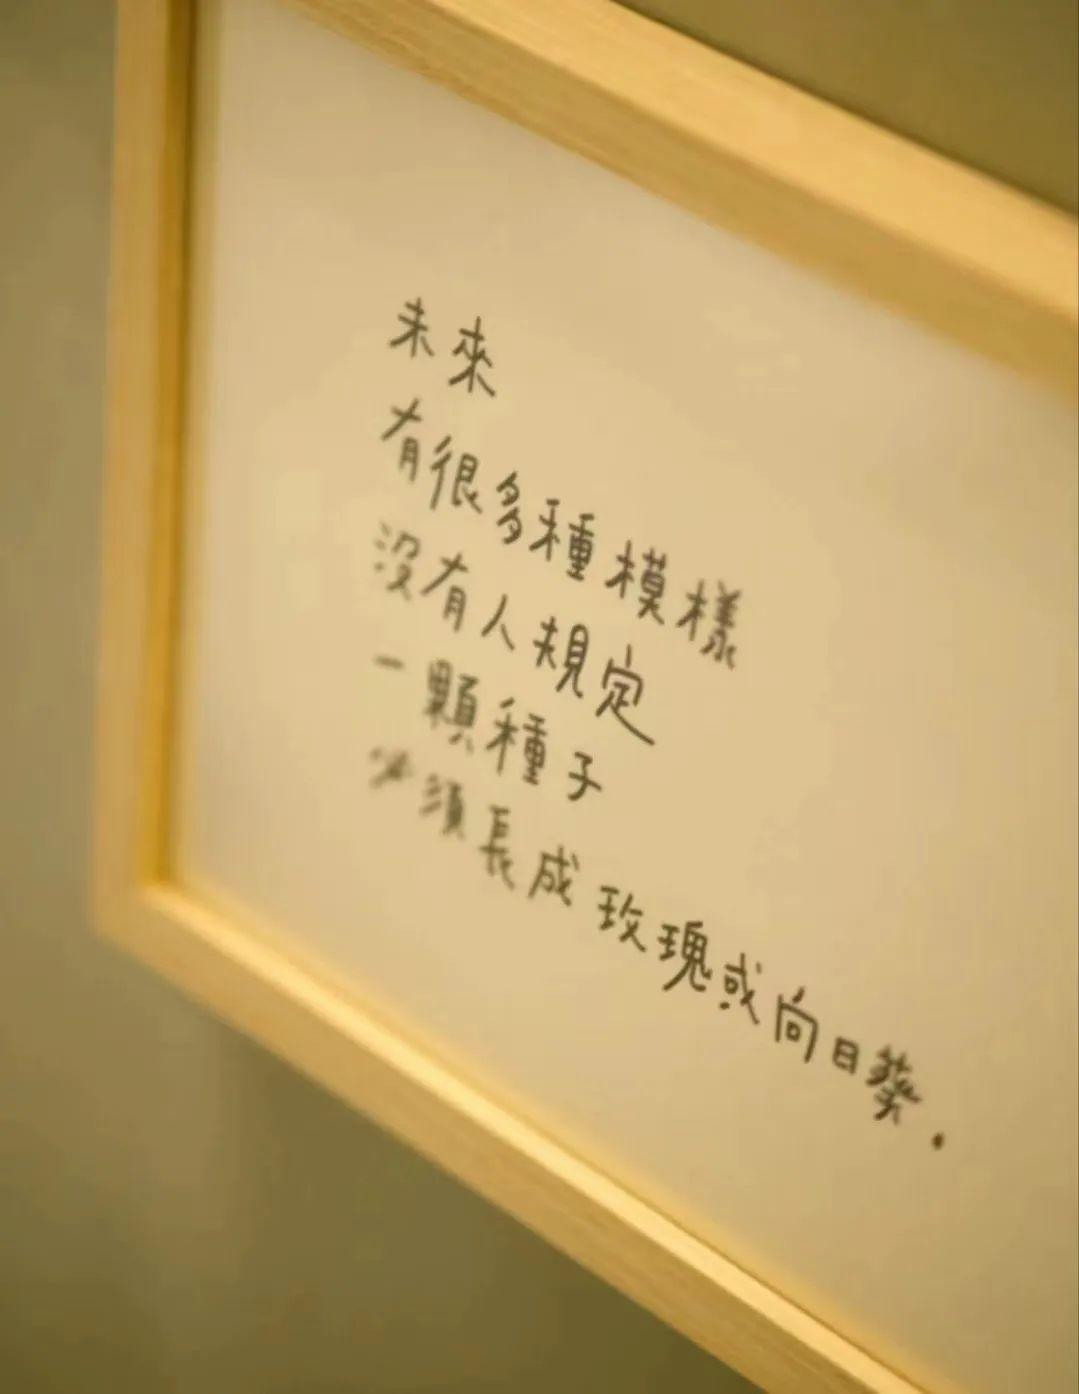 未來
有很多種模樣
沒有人規定
一顆種子
必須長成玫瑰或向日葵.